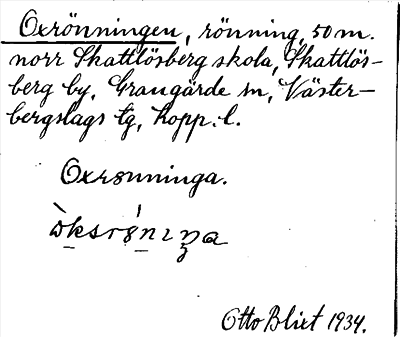 Oxrönningen, rönning, 50 m.
norr Skattlösberg skola, Skattlös-
berg by, Grangärde sn, Väster-
bergslags tg, Kopp. l.
Oxrønninga.
Otto Blixt 1934.